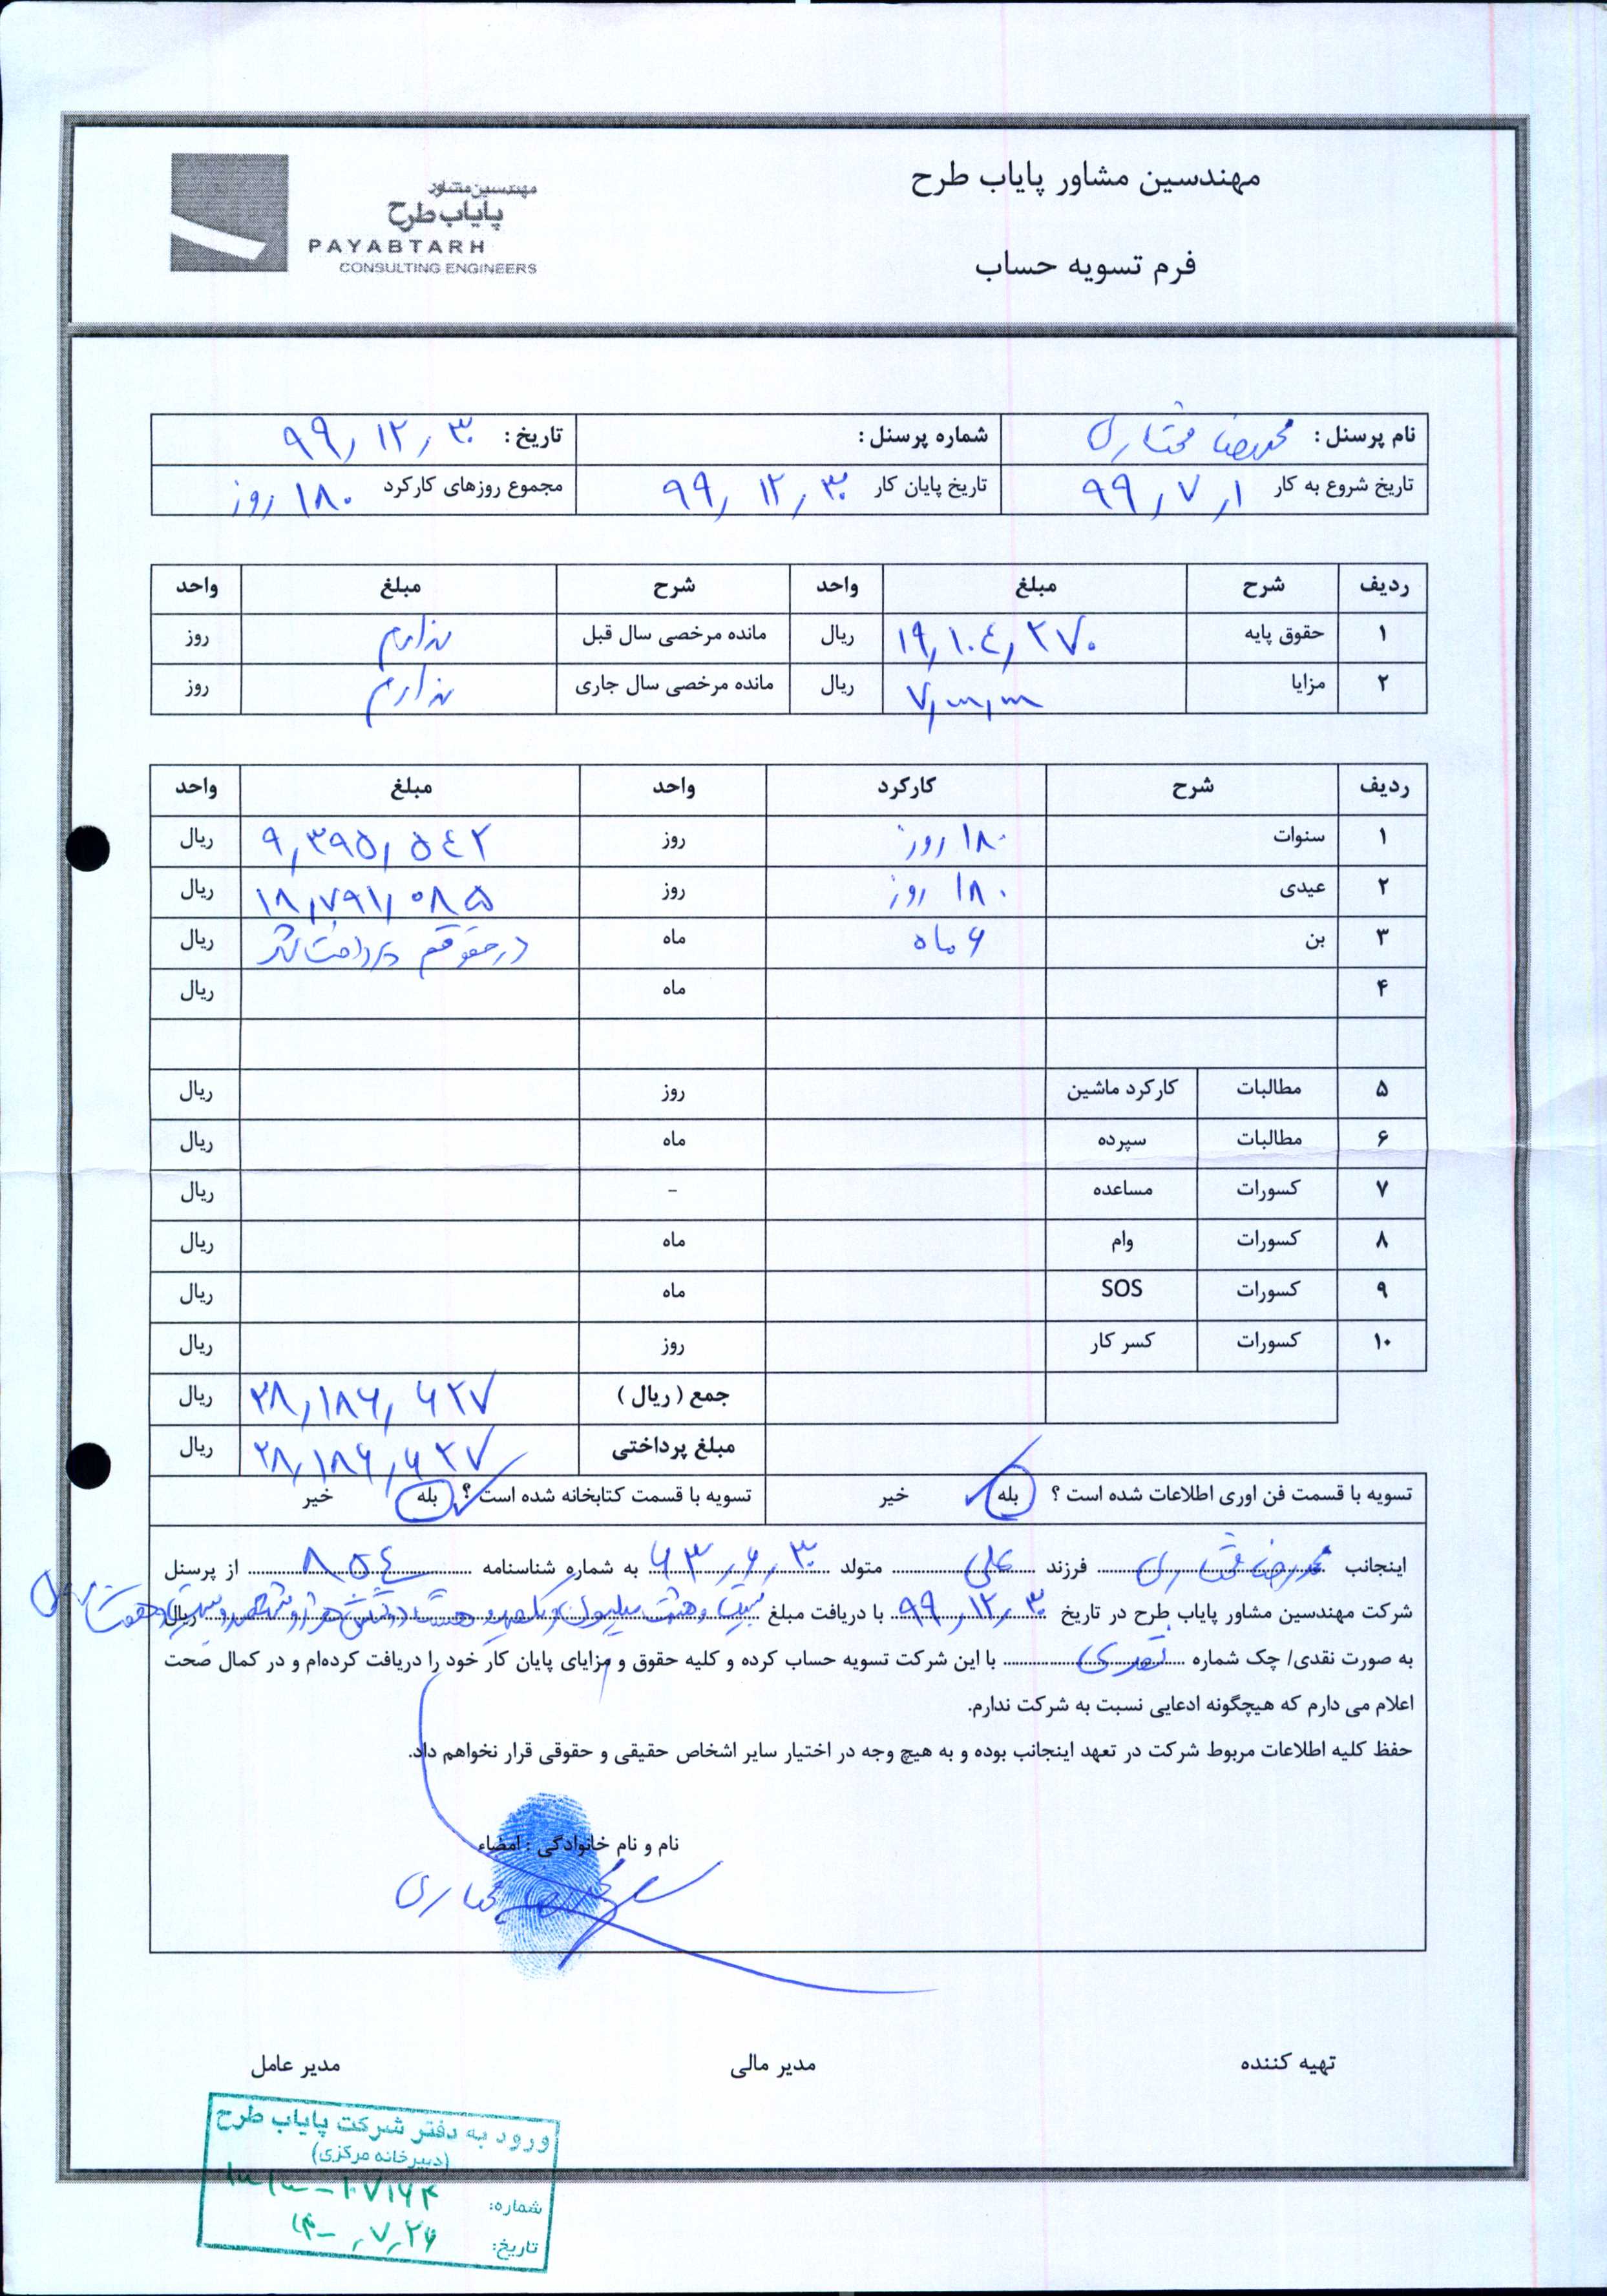 مهندسین مشاور پایاب طرح
فرم تسویه حساب
مهندسین مشاور
پایاب طرح
PAYABTARH
CONSULTING ENGINEERS
نام پرسنل : محمدرضا مختاری شماره پرسنل : تاریخ : ۹۹/۱۲/۳۰
تاریخ شروع به کار ۹۹/۷/۱ تاریخ پایان کار ۹۹/۱۲/۳۰ مجموع روزهای کارکرد ۱۸۰ روز
ردیف شرح مبلغ واحد شرح مبلغ واحد
۱ حقوق پایه ۱۹,۱۰٤,۲۷۰ ریال مانده مرخصی سال قبل ندارم روز
۲ مزایا ۷,۰۰۰,۰۰۰ ریال مانده مرخصی سال جاری ندارم روز
ردیف شرح کارکرد واحد مبلغ واحد
۱ سنوات ۱۸۰ روز روز ۹,۳۹۵,۵٤۲ ریال
۲ عیدی ۱۸۰ روز روز ۱۸,۷۹۱,۰۸۵ ریال
۳ بن ۶ ماه ماه در حقوقم پرداخت شد ریال
۴ ماه ریال
۵ مطالبات کارکرد ماشین روز ریال
۶ مطالبات سپرده ماه ریال
۷ کسورات مساعده - ریال
۸ کسورات وام ماه ریال
۹ کسورات SOS ماه ریال
۱۰ کسورات کسر کار روز ریال
جمع ( ریال ) ۲۸,۱۸۶,۶۲۷ ریال
مبلغ پرداختی ۲۸,۱۸۶,۶۲۷ ریال
تسویه با قسمت فن اوری اطلاعات شده است ؟ بله خیر تسویه با قسمت کتابخانه شده است ؟ بله خیر
اینجانب محمدرضا مختاری فرزند علی متولد ۶۳/۶/۳۰ به شماره شناسنامه ۸۵٤ از پرسنل
شرکت مهندسین مشاور پایاب طرح در تاریخ ۹۹/۱۲/۳۰ با دریافت مبلغ بیست و هشت میلیون و یکصد و هشتاد و شش هزار و ششصد و بیست و هفت ریال
به صورت نقدی/ چک شماره نقدی با این شرکت تسویه حساب کرده و کلیه حقوق و مزایای پایان کار خود را دریافت کرده‌ام و در کمال صحت
اعلام می دارم که هیچگونه ادعایی نسبت به شرکت ندارم.
حفظ کلیه اطلاعات مربوط شرکت در تعهد اینجانب بوده و به هیچ وجه در اختیار سایر اشخاص حقیقی و حقوقی قرار نخواهم داد.
نام و نام خانوادگی : امضاء
محمدرضا مختاری
تهیه کننده مدیر مالی مدیر عامل
ورود به دفتر شرکت پایاب طرح
(دبیرخانه مرکزی)
شماره:
تاریخ: